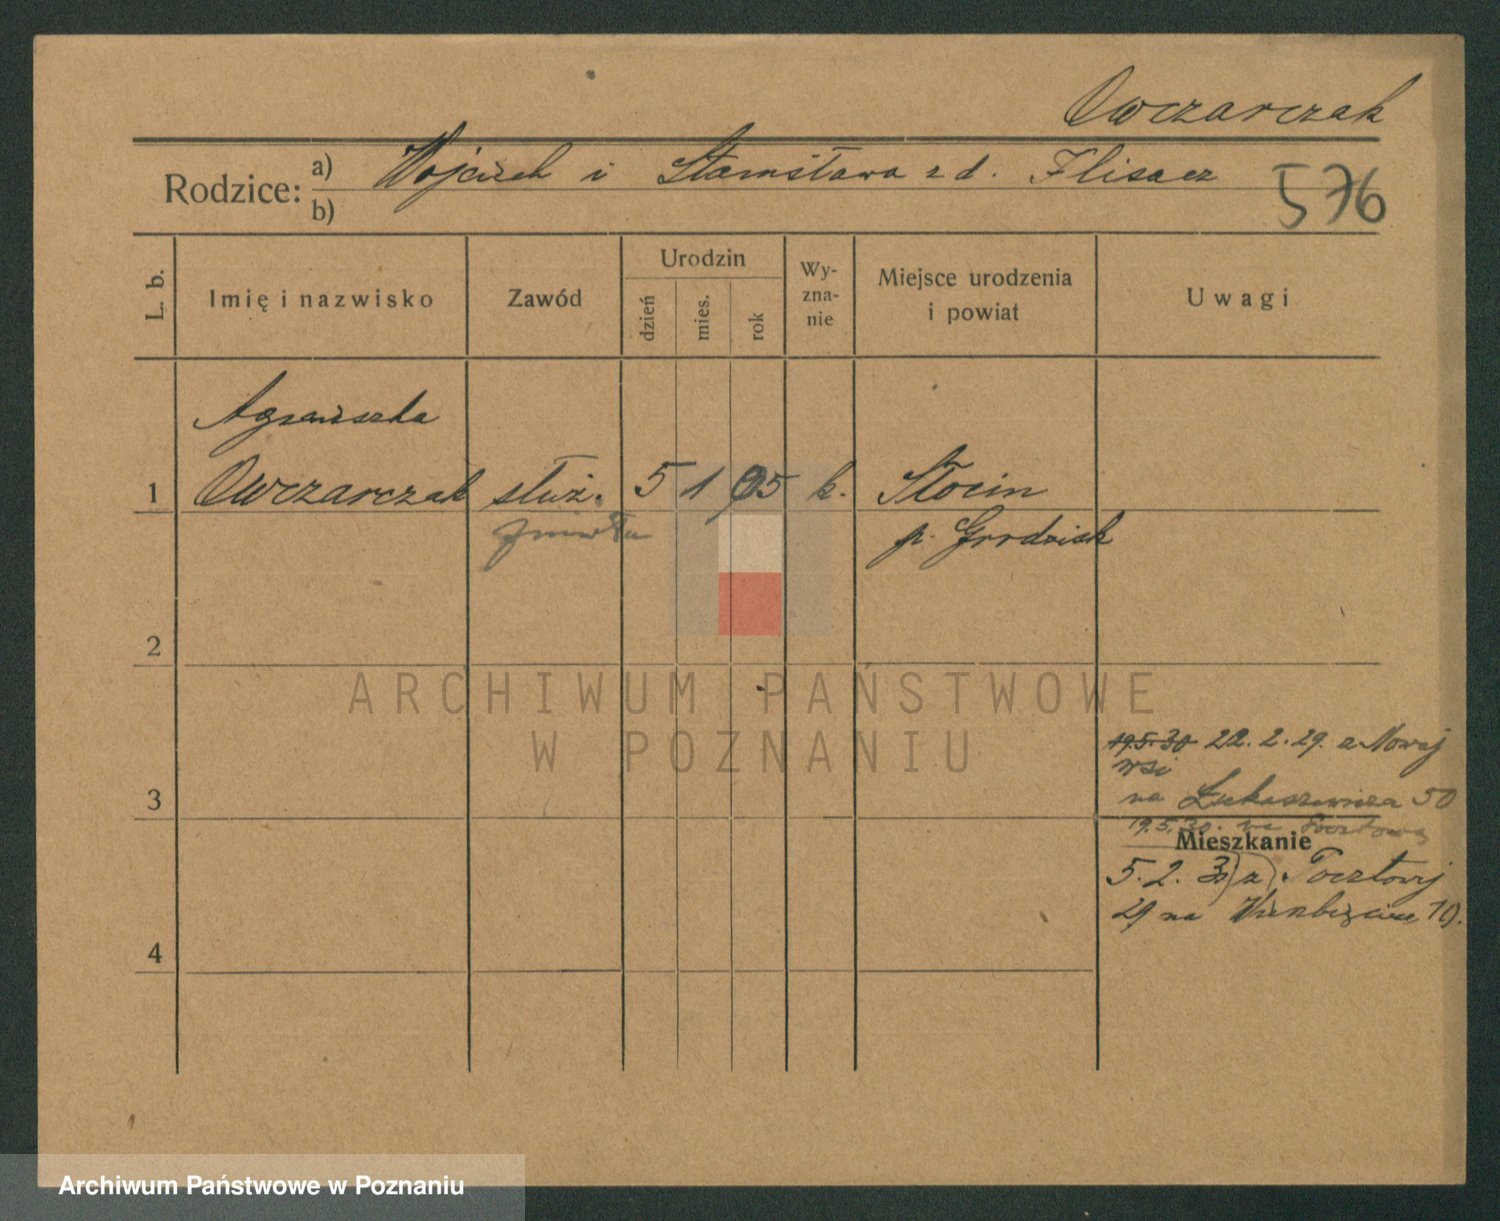 Owczarczak
Rodzice: a) Wojciech i Stanisława z d. Flisacz
b)
576
L. b.
Imię i nazwisko
Zawód
Urodzin
dzień
mies.
rok
Wy-
zna-
nie
Miejsce urodzenia
i powiat
Uwagi
Agnieszka
1 Owczarczak służ. 5 1 05 k. Stocin
p. Grodzisk
2
ARCHIWUM PAŃSTWOWE
W POZNANIU
19.5.30 22.2.29. z Nowej
wsi
3
na Łukaszewicza 50
19.5.30. na Pocztową
Mieszkanie
5.2.3 z Pocztowej
29 na Wierzbięcice 10.
4
Archiwum Państwowe w Poznaniu